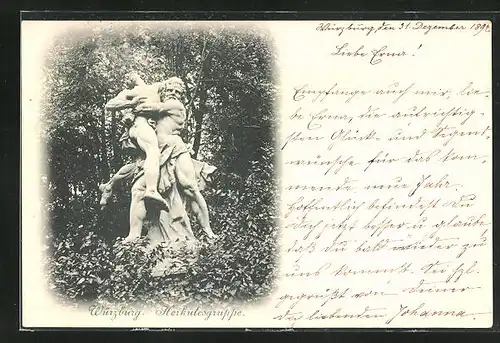 Würzburg, den 31. Dezember 189
Liebe Erna!
Empfange auch mir, lie-
be Erna, die aufrichtig-
sten Glück- und Segens-
wünsche für das kom-
mende neue Jahr.
Hoffentlich befindest Du
Dich jetzt besser u. glaube
daß du bald wieder zu
uns kommst. Sei hzl.
gegrüßt von deiner
dich liebenden Johanna.
Würzburg. Herkulesgruppe.